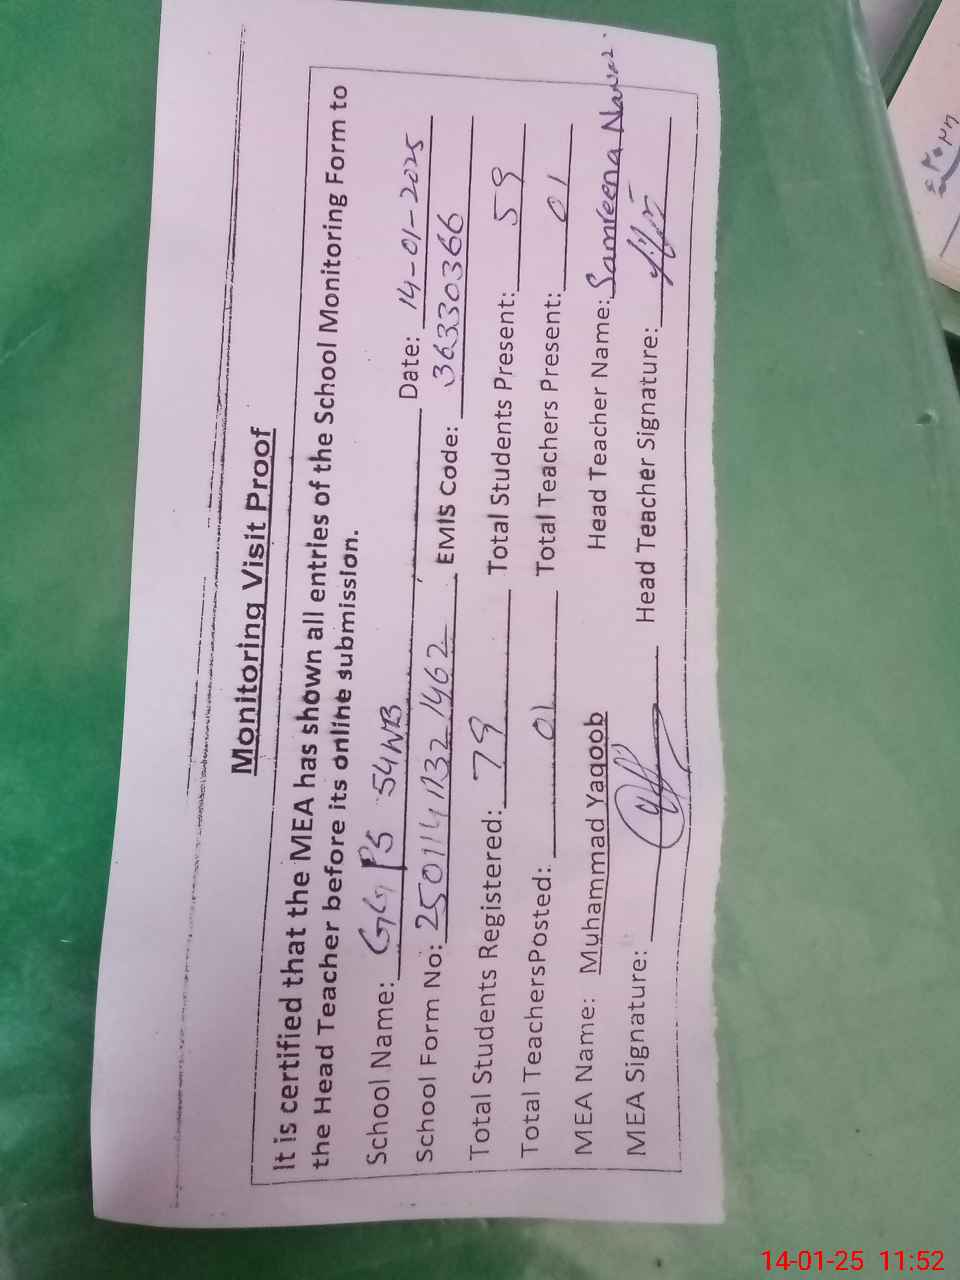 Monitoring Visit Proof
It is certified that the MEA has shown all entries of the School Monitoring Form to
the Head Teacher before its online submission.
School Name: GGPS 54WB Date: 14-01-2025
School Form No: 250114113321462 EMIS Code: 36330366
Total Students Registered: 79 Total Students Present: 59
Total TeachersPosted: 01 Total Teachers Present: 01
MEA Name: Muhammad Yaqoob Head Teacher Name: Samreena
MEA Signature: Head Teacher Signature:
14-01-25 11:52